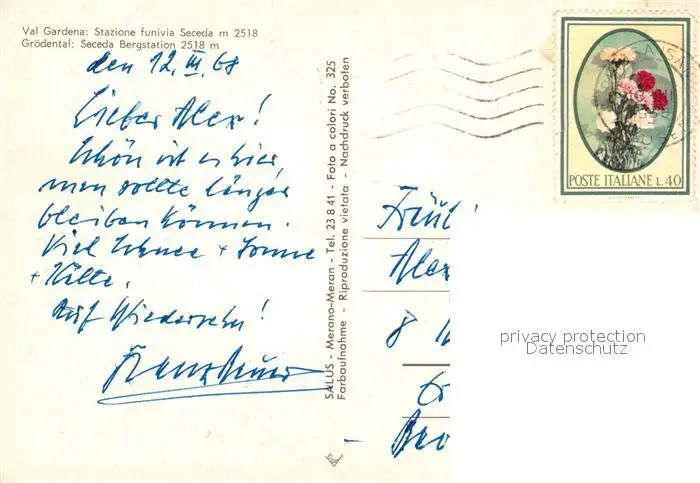 Val Gardena: Stazione funivia Seceda m 2518
Grödental: Seceda Bergstation 2518 m
den 12. III. 68
Lieber Alex!
Schön ist es hier,
man sollte länger
bleiben können.
Viel Schnee + Sonne
+ Kälte.
Auf Wiedersehn!
SALUS - Merano-Meran - Tel. 23 8 41 - Foto a colori No. 325
Farbaufnahme - Riproduzione vietata - Nachdruck verboten
POSTE ITALIANE L. 40
Fräul
Alex
8
privacy protection
Datenschutz